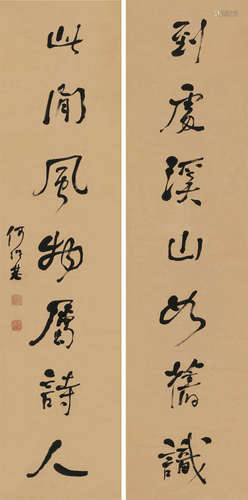 到處溪山如舊識
此間風物屬詩人
何紹基